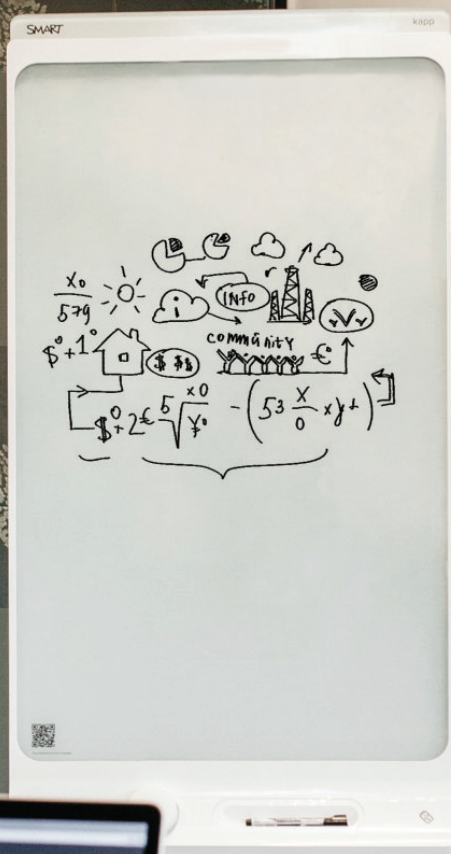 SMART kapp
x0
579
INFO
i
$° + 1°
$ $$
community
€
$⁰ + 2€ 5√ x0 / ¥° - (53 x/0 x y t)